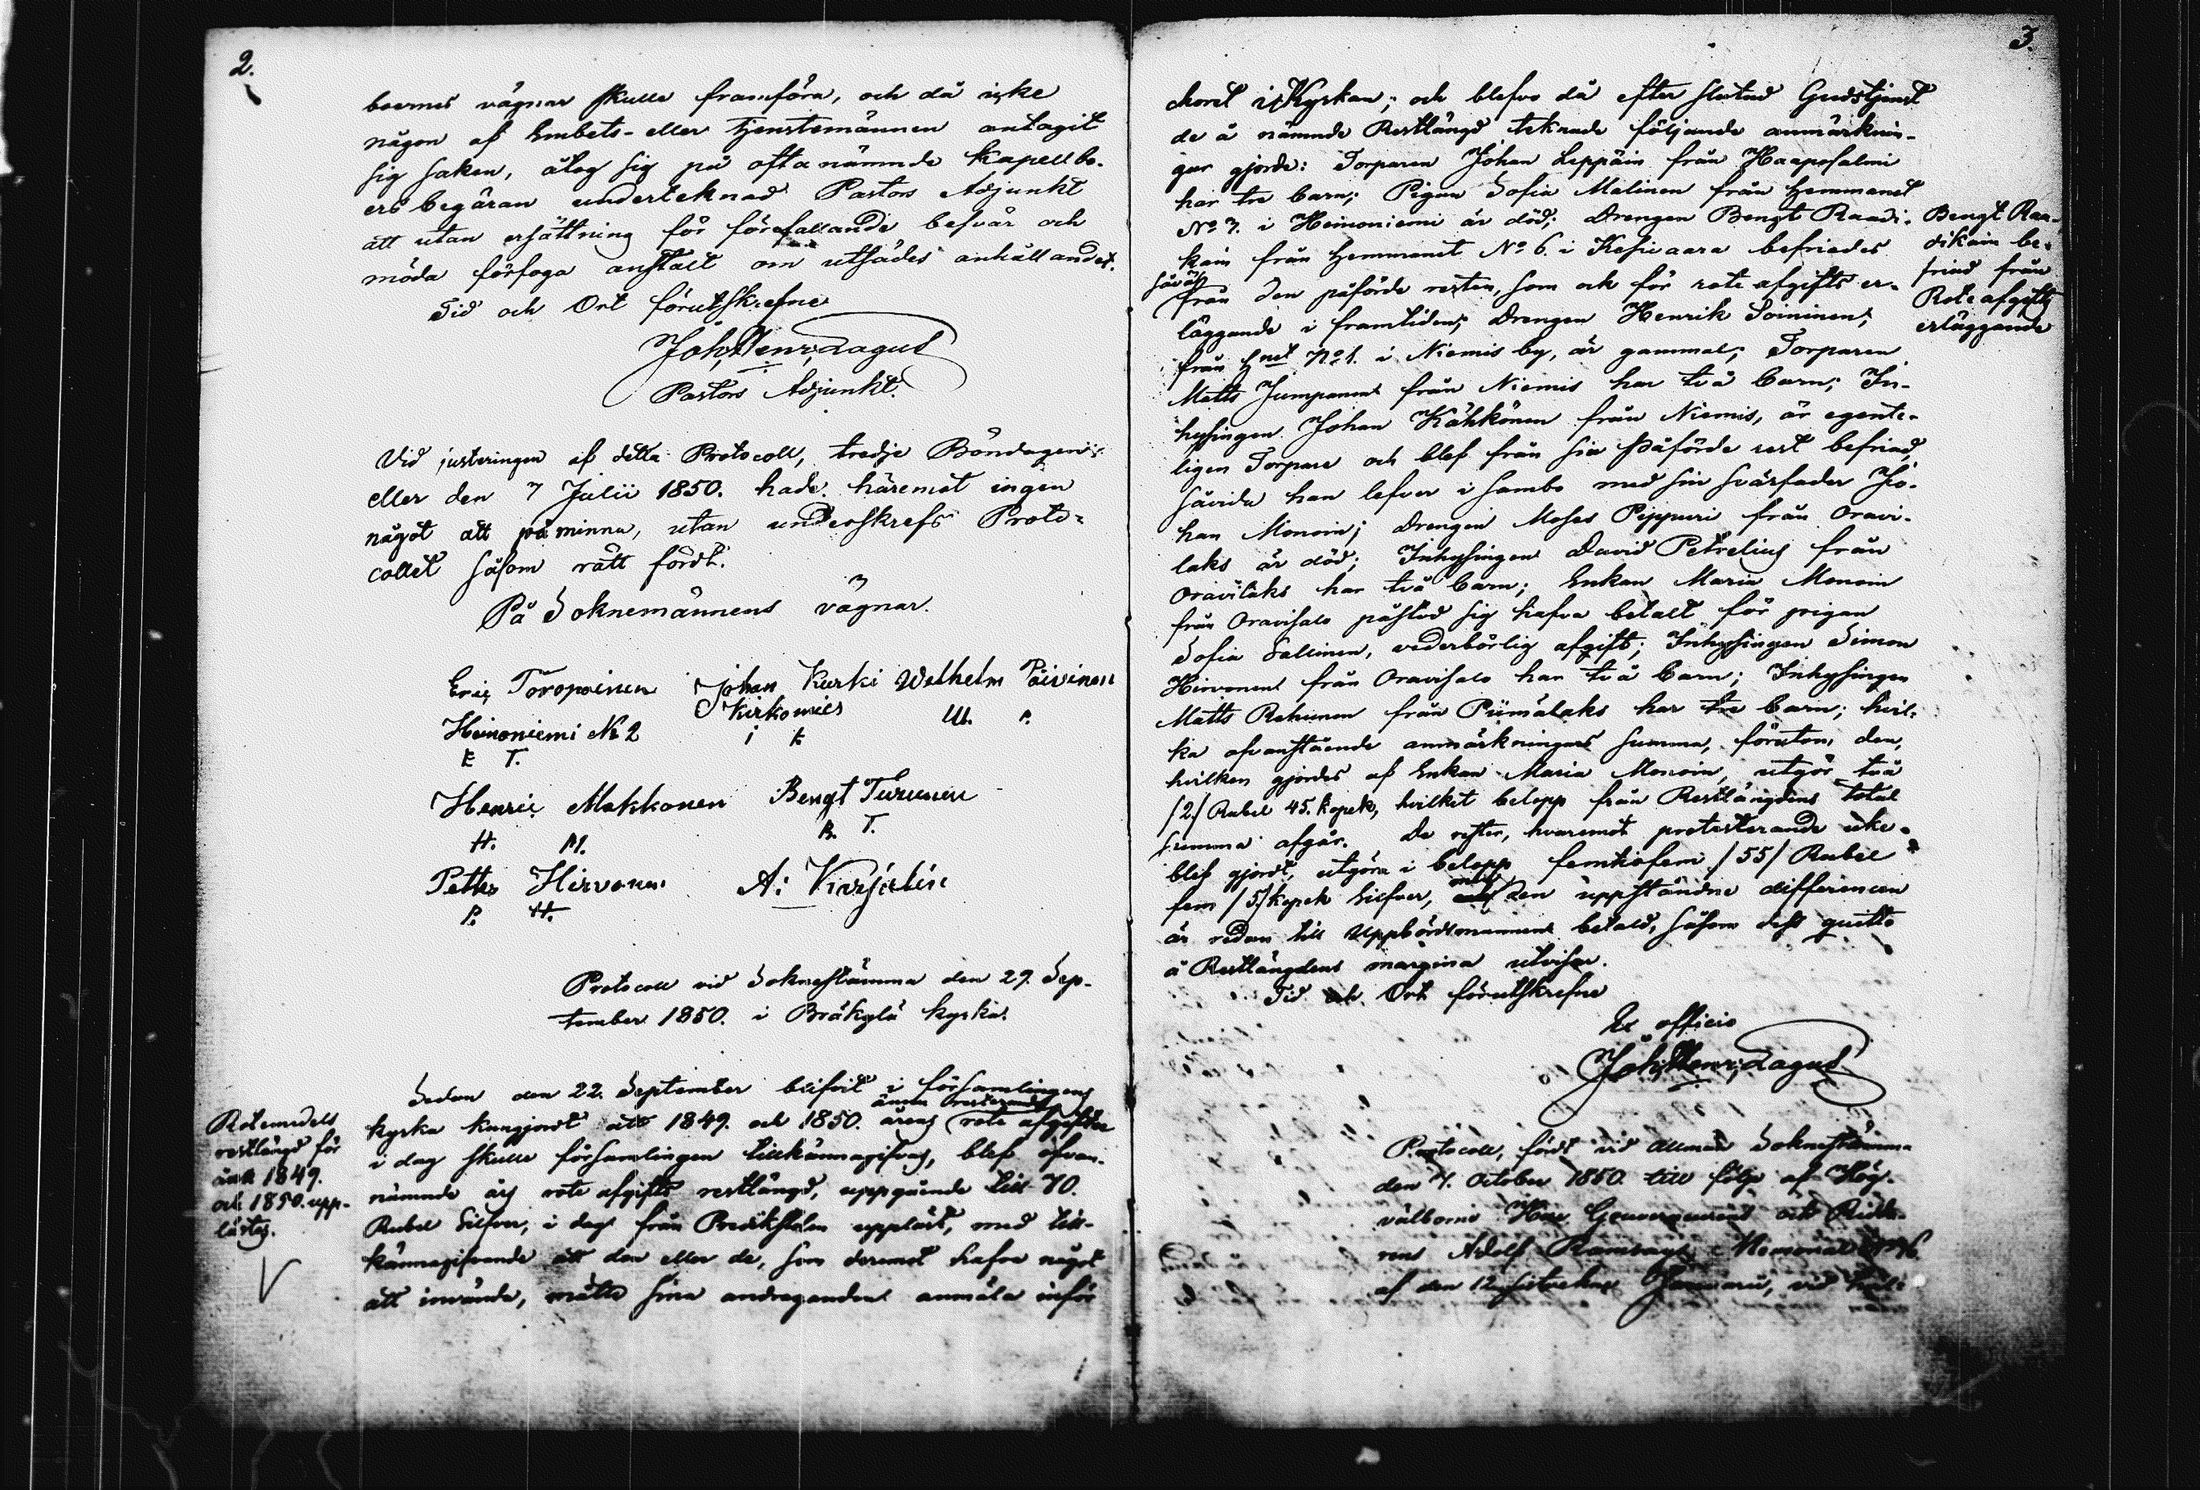 2.
boernes vägnar skulle framföra, och då icke
någon af Embets- eller tjenstemännen antagit
sig saken, åtog sig på oftanämnde Kapellbo-
ers begäran undertecknad Pastors Adjunkt
att utan ersättning för förefallande besvär och
möda förfoga anstalt om utsädes anhållandet.
Tid och Ort förutskrefne
Joh. Henr. Lagus
Pastors Adjunkt.
Vid justeringen af detta Protocoll, tredje Böndagen
eller den 7 Julii 1850. hade häremot ingen
något att påminna, utan underskrefs Proto-
collet såsom rätt fördt.
På Soknemännens vägnar.
Eric Toropainen Johan Kurki Wilhelm Päivinen
Heinoniemi No 2 Kirkomies W. P.
E T. i K
Henric Makkonen Bengt Turunen
H. M. B. T.
Petter Hirvonen A: Karsialin
P. H.
Protocoll vid Soknestämma den 29. Sep-
tember 1850. i Bräkylä kyrka.
Sedan den 22. September blifvit i församlingens
kyrka kungjordt att 1849. och 1850. årens ännu resterande rote afgifter
i dag skulle församlingen tillkännagifvas, blef ofvan-
nämnde års rote afgifts restlängd, uppgående till 70.
Rubel Silfver, i dag från Predikstolen uppläst, med till-
kännagifvande att den eller de, som deremot hafva något
att invända, måtte sina andraganden anmäla inför
Rotemedels
restlängd för
åren 1849.
och 1850. upp-
lästes.
3.
choret i Kyrkan; och blefvo då efter slutad Gudstjenst
de å nämnde Restlängd teknade följande anmärknin-
gar gjorde: Torparen Johan Leppäin från Haaposalmi
har tre barn; Pigan Sofia Malinen från Hemmanet
No 7. i Heinoniemi är död; Drengen Bengt Raadi-
kain från Hemmanet No 6. i Kesivaara befriades
såväl från den påförde resten, som och för rote afgifts er-
läggande i framtiden; Drengen Henrik Soininen,
från Hmet No 1. i Niemis by, är gammal; Torparen
Matts Jumpanen från Niemis har två barn; In-
hysingen Johan Kähkönen från Niemis, är egente-
ligen Torpare och blef från sin påförde rest befriad,
såvida han lefver i sambo med sin svärfader Jo-
han Monoin; Drengen Moses Pippuri från Oravi-
laks är död; Inhysingen David Petrelius från
Oravilaks har två barn; Enkan Maria Monoin
från Oravisalo påstod sig hafva betalt för pigan
Sofia Sallinen, vederbörlig afgift; Inhysingen Simon
Hirvonen från Oravisalo har två barn; Inhysingen
Matts Rahunen från Piimälaks har tre barn; hvil-
ka ofvanstående anmärkningars summa, förutom den,
hvilken gjordes af Enkan Maria Monoin, utgör två
/2/ Rubel 45. kopek, hvilket belopp från Restlängdens total
summa afgår. De rester, hvaremot protesterande icke
blef gjordt, utgöra i belopp femtiofem /55/ Rubel
fem /5/ kopek Silfver, men den uppstående differencen
är redan till Uppbördsmannen betald, såsom dess quitto
å Restlängdens margina utvisar.
Tid och Ort förutskrefne
Ex officio
Joh. Henr. Lagus
Bengt Raa-
dikain be-
friad från
Roteafgifts
erläggande
Protocoll, fördt vid allmän Soknestämma
den 4. October 1850. till följe af Hög-
välborne Herr Gouverneurens och Ridda-
rens Adolf Ramsays Memorial No 76
af den 12 sistvekne Januarii, vid